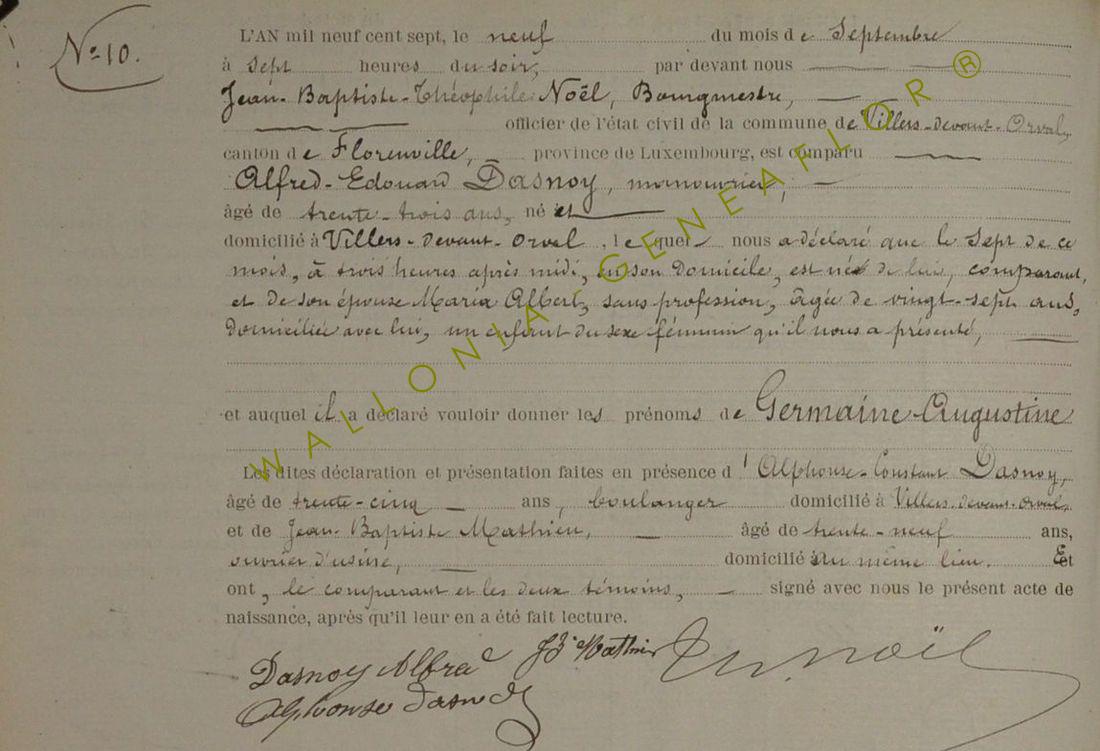 N° 10.
L'AN mil neuf cent sept, le neuf du mois de Septembre
à sept heures du soir, par devant nous
Jean-Baptiste-Théophile Noël, Bourgmestre,
officier de l'état civil de la commune de Villers-devant-Orval,
canton de Florenville, province de Luxembourg, est comparu
Alfred-Edouard Dasnoy, manouvrier,
âgé de trente-trois ans, né et
domicilié à Villers-devant-Orval, lequel nous a déclaré que le sept de ce
mois, à trois heures après midi, en son domicile, est né de lui, comparant,
et de son épouse Maria Albert, sans profession, âgée de vingt-sept ans,
domiciliée avec lui, un enfant du sexe féminin qu'il nous a présenté,
et auquel il a déclaré vouloir donner les prénoms de Germaine-Augustine
Les dites déclaration et présentation faites en présence d'Alphonse-Constant Dasnoy,
âgé de trente-cinq ans, boulanger domicilié à Villers-devant-Orval,
et de Jean-Baptiste Mathieu, âgé de trente-neuf ans,
ouvrier d'usine, domicilié au même lieu. Et
ont, le comparant et les deux témoins, signé avec nous le présent acte de
naissance, après qu'il leur en a été fait lecture.
Dasnoy Alfred JB Mathieu Noël
Alphonse Dasnoy
WALLONIA-GENEAFLOR ®